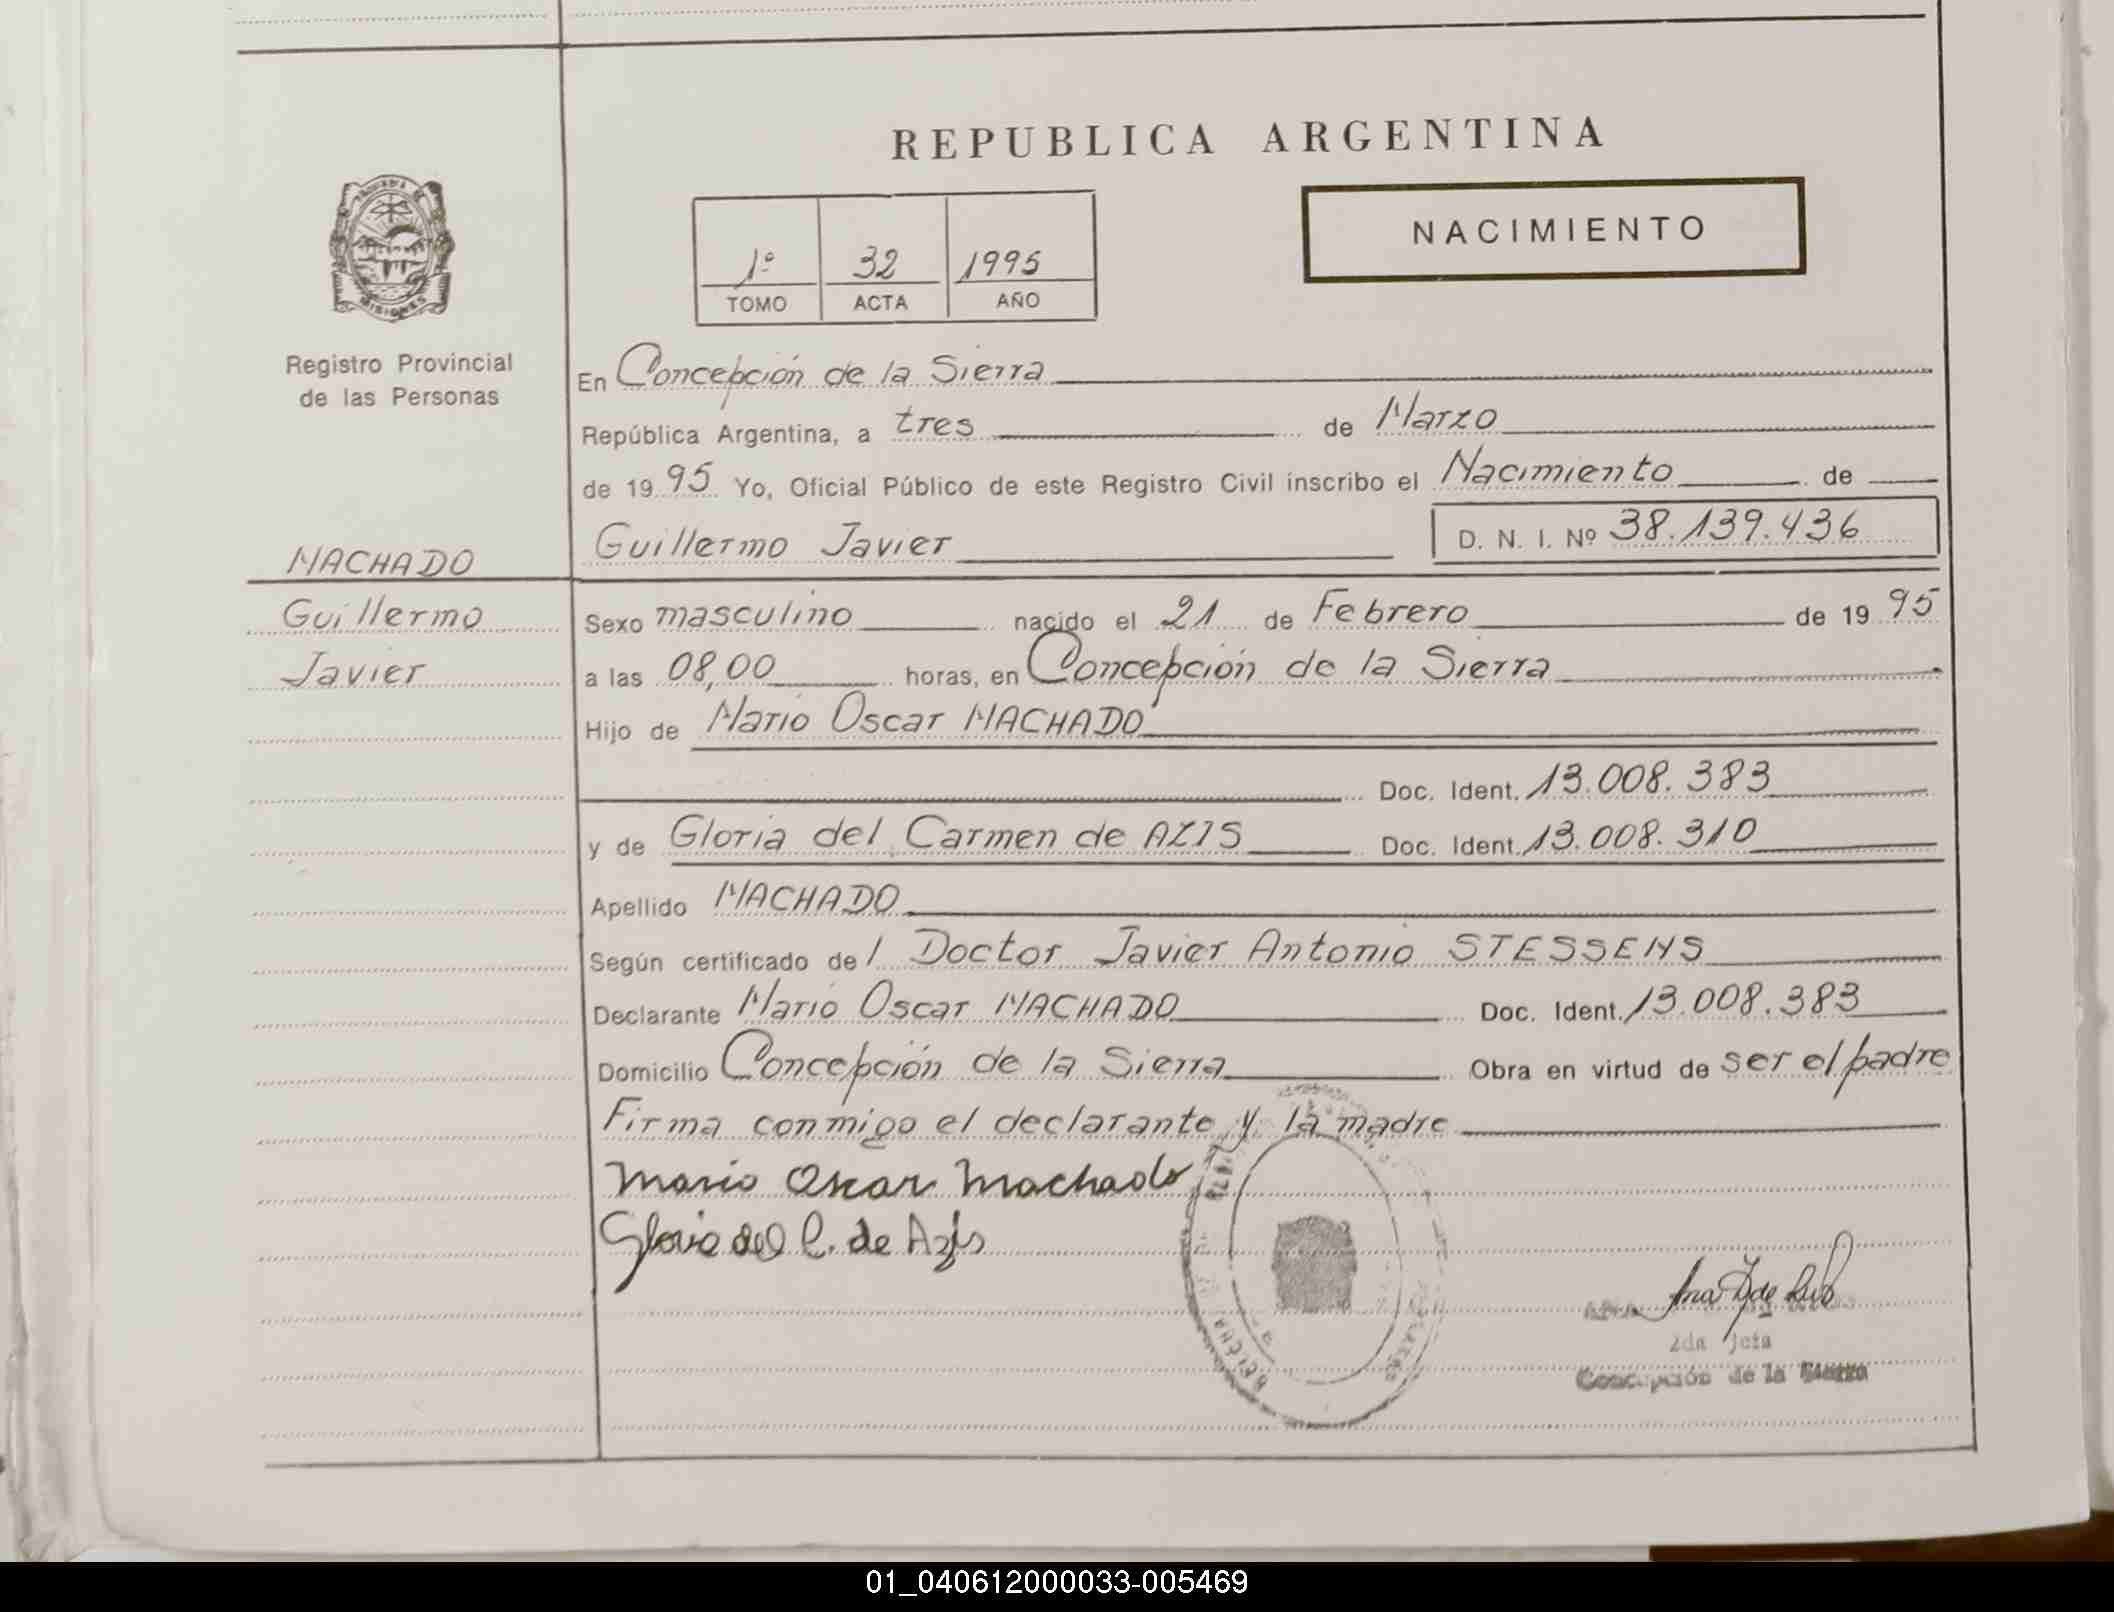 REPUBLICA ARGENTINA
NACIMIENTO
1º 32 1995
TOMO ACTA AÑO
MISIONES
Registro Provincial
de las Personas
MACHADO
Guillermo
Javier
En Concepción de la Sierra
República Argentina, a tres de Marzo
de 1995 Yo, Oficial Público de este Registro Civil inscribo el Nacimiento de
Guillermo Javier D. N. I. Nº 38.139.436
Sexo masculino nacido el 21 de Febrero de 1995
a las 08,00 horas, en Concepción de la Sierra
Hijo de Mario Oscar MACHADO
Doc. Ident. 13.008.383
y de Gloria del Carmen de AZIS Doc. Ident. 13.008.310
Apellido MACHADO
Según certificado del Doctor Javier Antonio STESSENS
Declarante Mario Oscar MACHADO Doc. Ident. 13.008.383
Domicilio Concepción de la Sierra Obra en virtud de ser el padre
Firma conmigo el declarante y la madre
Mario Oscar Machado
Gloria del C. de Azis
Ana
2da Jefa
Concepción de la Sierra
01_040612000033-005469